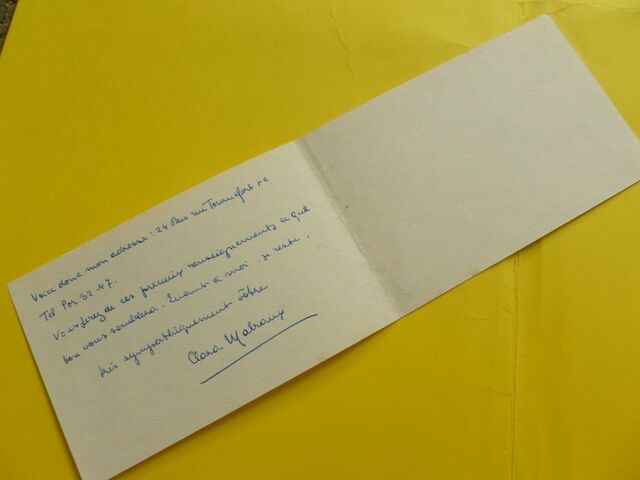 Voici donc mon adresse : 24 bis rue Tournefort Ve
Tel Por 92.47.
Vous ferez de ces précieux renseignements ce que
bon vous semblera. Quant à moi je reste,
très sympathiquement vôtre
Clara Malraux